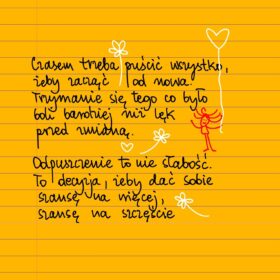 Czasem trzeba puścić wszystko,
żeby zacząć od nowa.
Trzymanie się tego co było
boli bardziej niż lęk
przed zmianą.
Odpuszczenie to nie słabość.
To decyzja, żeby dać sobie
szansę na więcej,
szansę na szczęście